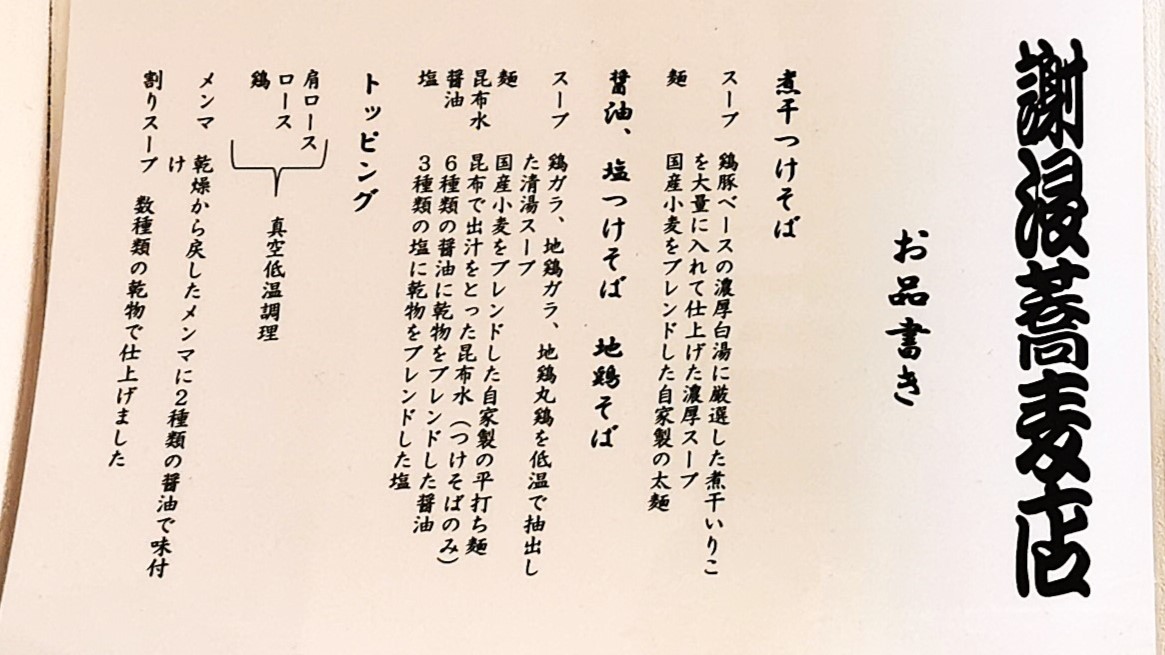 謝浸蕎麦店
お品書き
煮干つけそば
スープ　鶏豚ベースの濃厚白湯に厳選した煮干いりこ
を大量に入れて仕上げた濃厚スープ
麺　国産小麦をブレンドした自家製の太麺
醤油、塩つけそば　地鶏そば
スープ　鶏ガラ、地鶏ガラ、地鶏丸鶏を低温で抽出し
た清湯スープ
麺　国産小麦をブレンドした自家製の平打ち麺
昆布水　昆布で出汁をとった昆布水（つけそばのみ）
醤油　6種類の醤油に乾物をブレンドした醤油
塩　3種類の塩に乾物をブレンドした塩
トッピング
肩ロース
ロース
鶏
真空低温調理
メンマ　乾燥から戻したメンマに2種類の醤油で味付
け
割りスープ　数種類の乾物で仕上げました